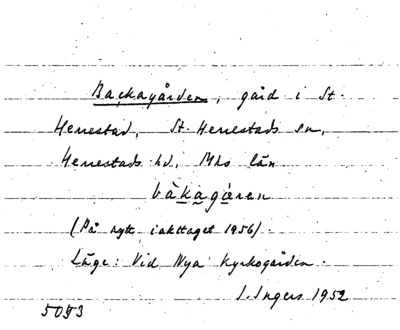 Backagården, gård i St.
Herrestad, St. Herrestads sn,
Herrestads hd, Mhs län.
bàkagæren
(På nytt iakttaget 1956).
Läge: Vid Nya Kyrkogården.
I. Ingers 1952
5093